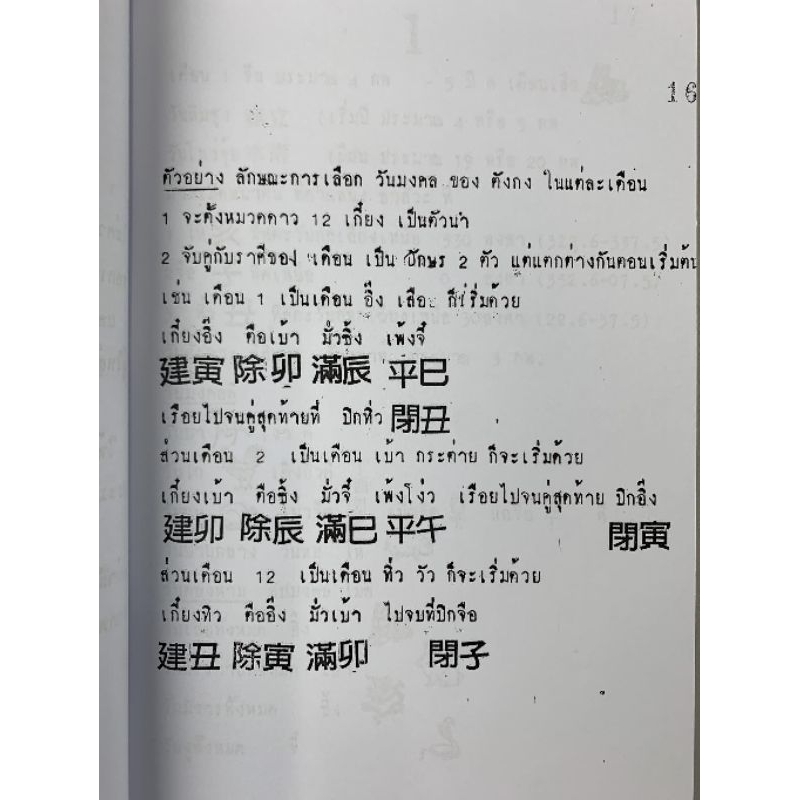 16
ตัวอย่าง ลักษณะการเลือก วันมงคล ของ ตังกง ในแต่ละเดือน
1 จะตั้งหมวดดาว 12 เกี๋ยง เป็นตัวนำ
2 จับคู่กับราศีของ เดือน เป็น อักษร 2 ตัว แต่แตกต่างกันตอนเริ่มต้น
เช่น เดือน 1 เป็นเดือน อิ๊ง เสือ ก็เริ่มด้วย
เกี๋ยงอิ๊ง คือเบ้า มั่วซิ้ง เพ้งจี๋
建寅 除卯 滿辰 平巳
เรือยไปจนคู่สุดท้ายที่ ปิกทิ่ว 閉丑
ส่วนเดือน 2 เป็นเดือน เบ้า กระต่าย ก็จะเริ่มด้วย
เกี๋ยงเบ้า คือซิ้ง มั่วจี๋ เพ้งโง่ว เรือยไปจนคู่สุดท้าย ปิกอิ๊ง
建卯 除辰 滿巳 平午 閉寅
ส่วนเดือน 12 เป็นเดือน ทิ่ว วัว ก็จะเริ่มด้วย
เกี๋ยงทิว คืออิ๊ง มั่วเบ้า ไปจบที่ปิกจือ
建丑 除寅 滿卯 閉子